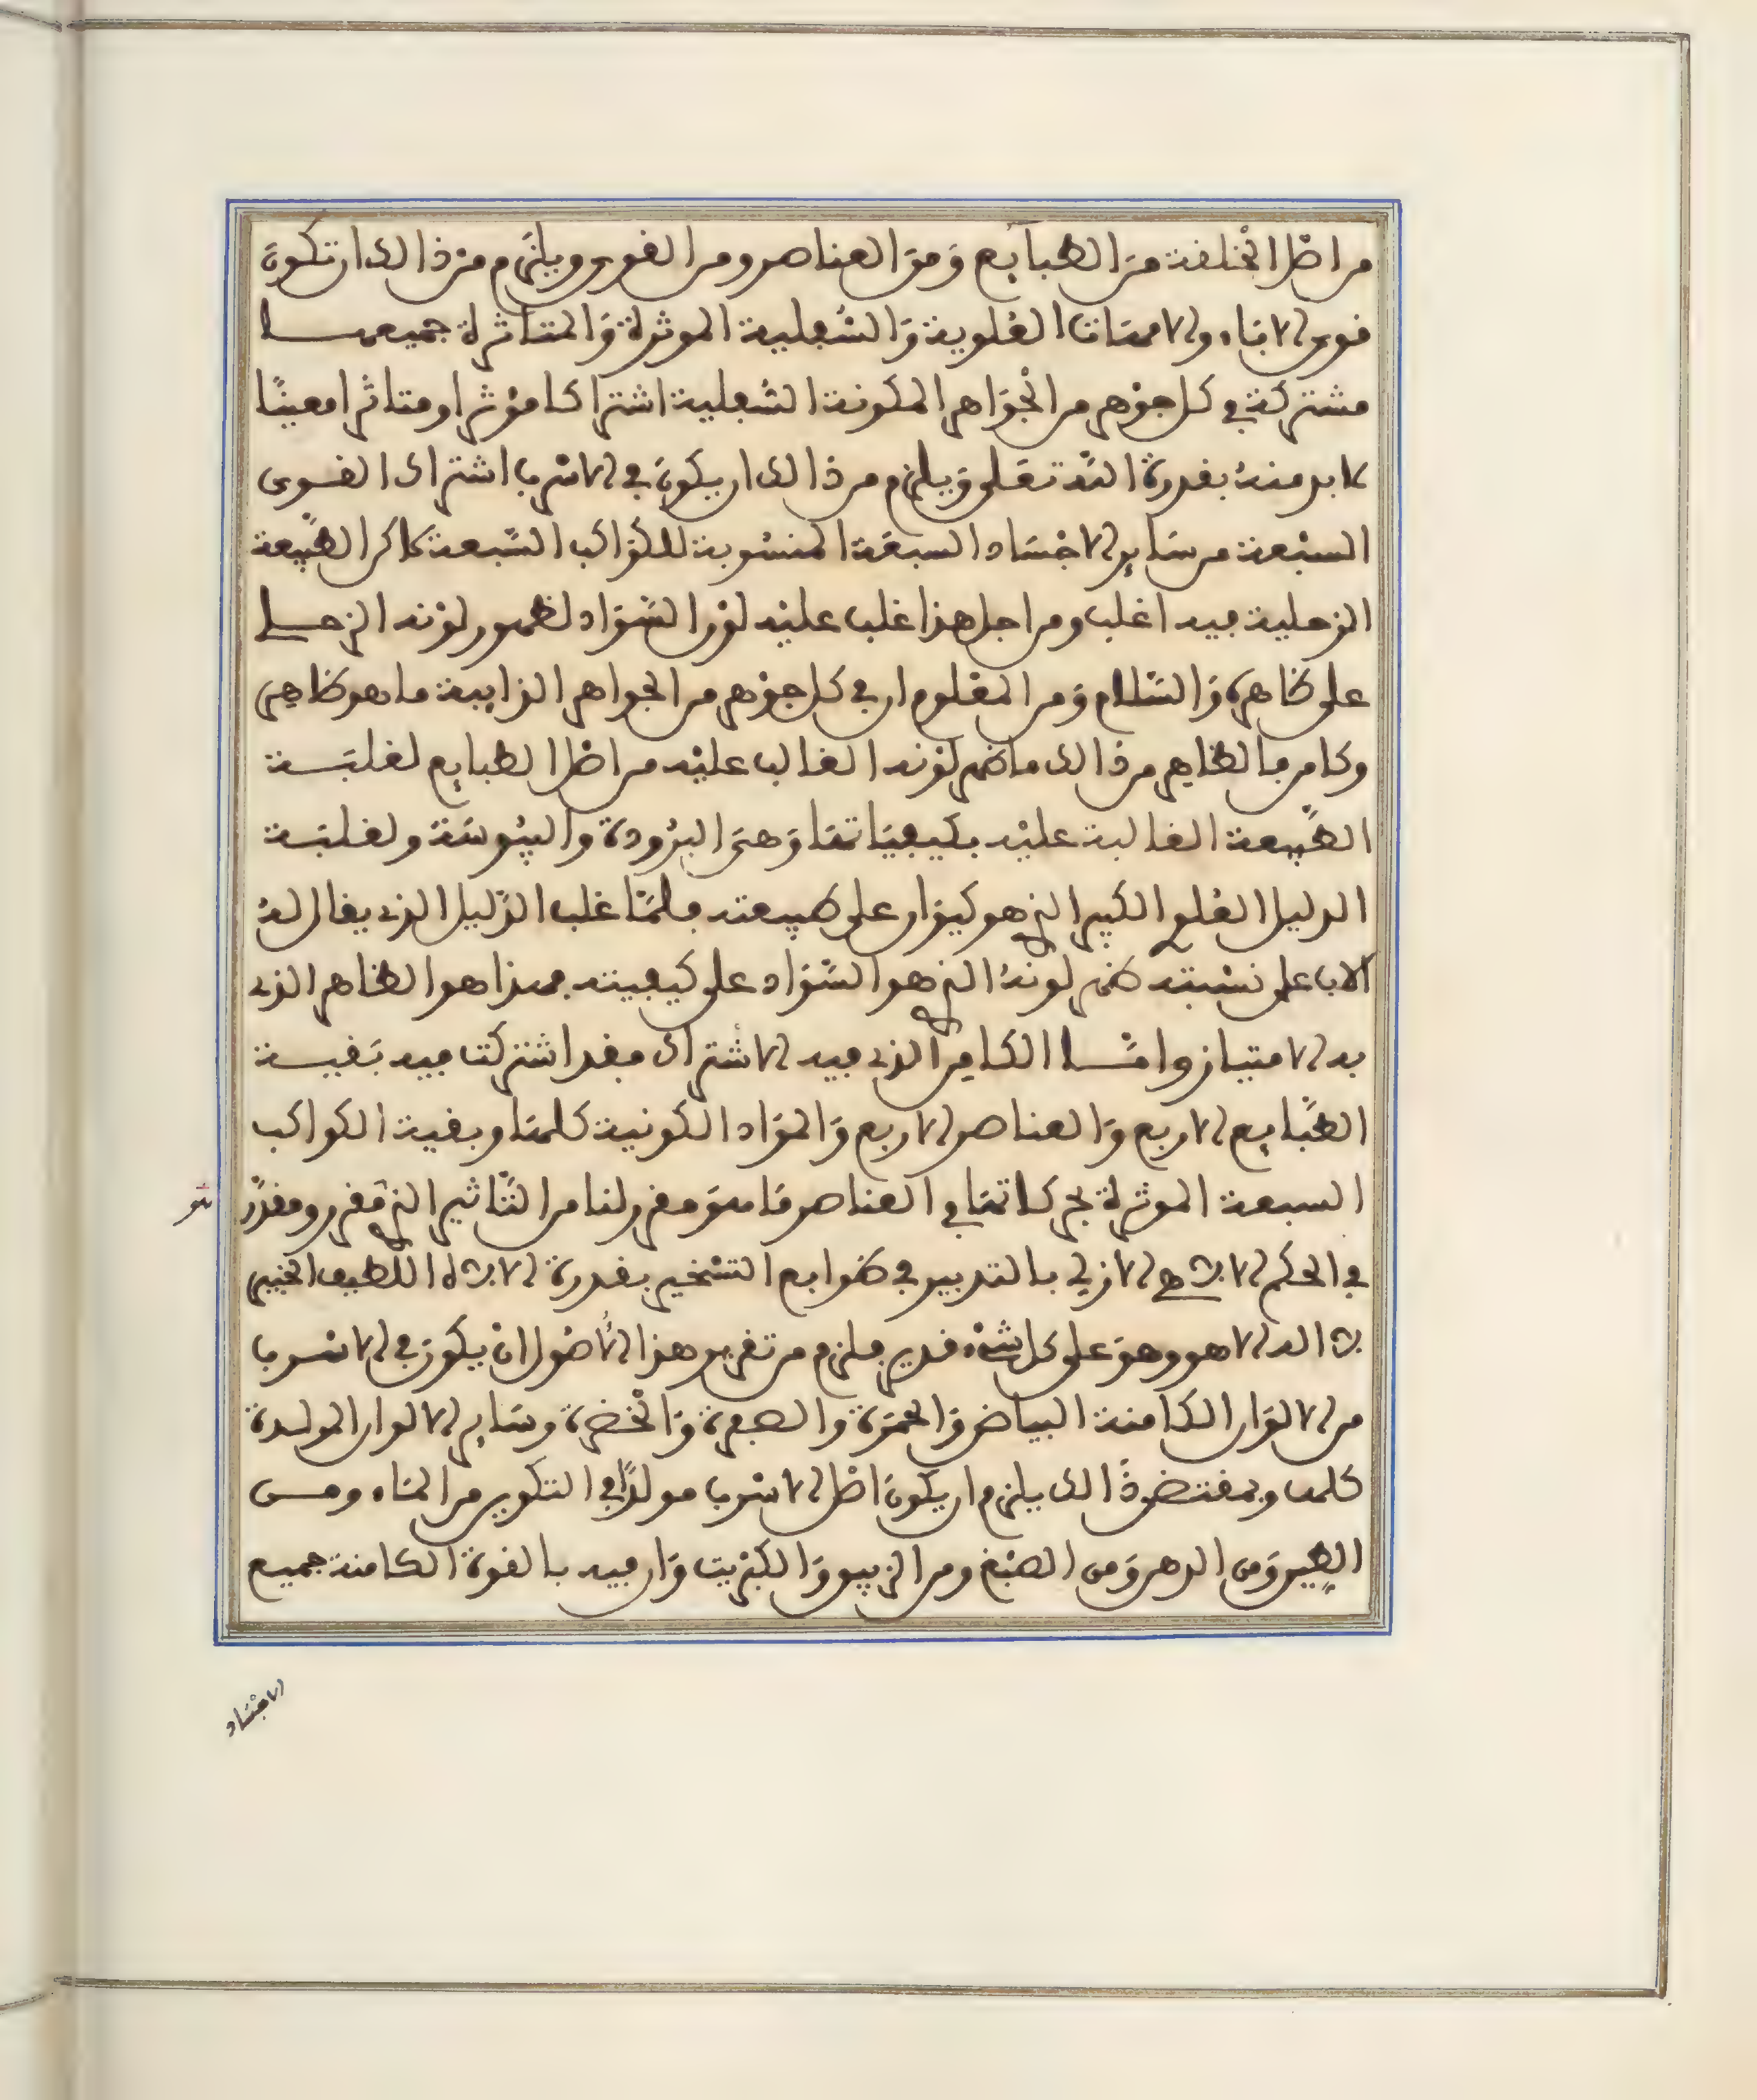 من اصل الخلقة من الطبايع ومن العناصر ومن القوى ويلزم من ذالك ان تكون
قوى الاباء والامهات العلوية والسفلية الموثرة والمتاثرة جميعها
مشتركة في كل جوهر من الجواهر المكونة السفلية اشتراكا موثرا ومتاثرا معينا
لابد منه بقدرة الله تعلى ويلزم من ذالك ان يكون في الاسرب اشتراك القوى
السبعة من ساير الاجساد السبعة المنسوبة للكواكب السبعة لاكن الطبيعة
الزحلية فيه اغلب ومن اجل هذا غلب عليه لون السواد لظهور لونه الزحلي
على ظاهره والسلام ومن المعلوم ان في كل جوهر من الجواهر الذايبة ما هو ظاهر
وكامن فالظاهر من ذالك ما ظهر لونه الغالب عليه من اصل الطبايع لغلبة
الطبيعة الغالبة عليه بكيفياتها وهي البرودة واليبوسة ولغلبة
الدليل العلو الكبير الذي هو كيوان على طبيعته فلما غلب الدليل الذي يقال له
الاب على نسبته ظهر لونه الذي هو السواد على كيفيته فهذا هو الظاهر الذي
به الامتياز واما الكامن الذي فيه الاشتراك فقد اشتركت فيه بقية
الطبايع الاربع والعناصر الاربع والمواد الكونية كلها وبقية الكواكب
السبعة الموثرة بحركاتها في العناصر ما هو مقرر لنا من التاثير الذي مقرر ومقدر
في الحكم الالهي الازلي بالتدبير في طوابع التسخير بقدرة الاله اللطيف الخبير
لا اله الا هو وهو على كل شيء قدير فلزم من تقرير هذا الاصول ان يكون في الاسرب
من الالوان الكامنة البياض والحمرة والصفرة والخضرة وساير الالوان المولدة
كلها وبمقتضى ذالك يلزم ان يكون اصل الاسرب مولدا في التكوين من الماء ومن
الطين ومن الدهن ومن الصبغ ومن الزيبق والكبريت وان فيه بالقوة الكامنة جميع
الاجساد